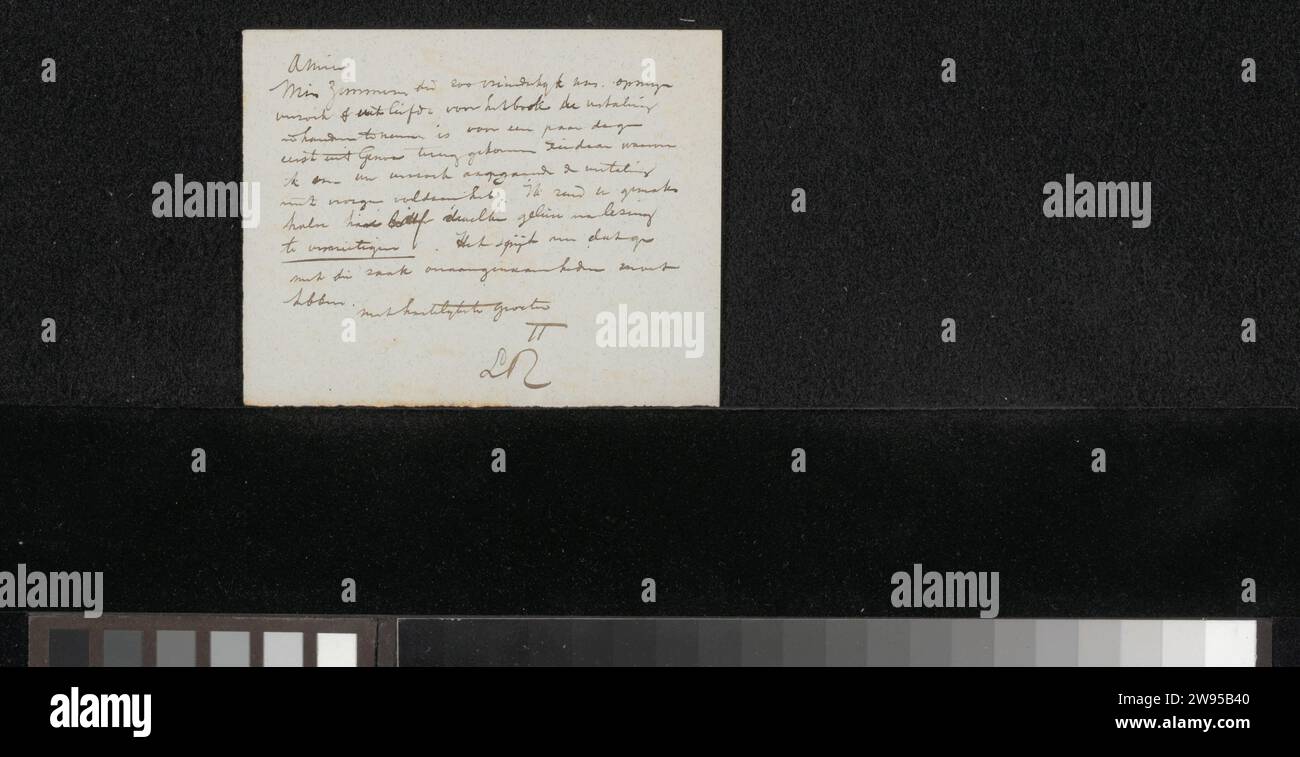 Amice
Miss Zimmern die zoo vriendelijk was. op mijn
verzoek & uit liefde voor het boek de vertaling
in handen te nemen is voor een paar dagen
eerst uit Genua terug gekomen ziedaar waarom
ik aan uw verzoek aangaande de vertaling
niet vroeger voldaan heb. Ik zend u gemaks
halve haar brief dewelke gelieve na lezing
te vernietigen. Het spijt me dat ge
met die zaak onaangenaamheden moet
hebben.
met hartelijkste groeten
TT
LR
alamy
alamy
alamy
alamy
alamy
Image ID: 2W95B40
www.alamy.com